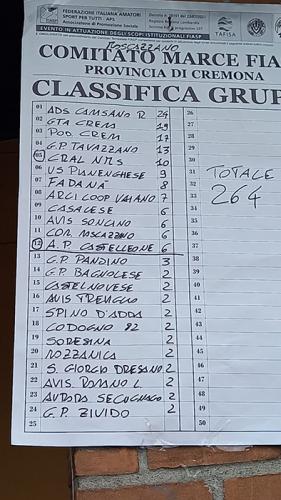 FEDERAZIONE ITALIANA AMATORI
SPORT PER TUTTI - APS
Associazione di Promozione Sociale
TAFISA
EVENTO IN ATTUAZIONE DEGLI SCOPI ISTITUZIONALI FIASP
MOSCAZZANO
COMITATO MARCE FIA
PROVINCIA DI CREMONA
CLASSIFICA GRUP
01 ADS CAMISANO R 24
02 GTA CREMA 19
03 POD. CREM 17
04 G.P. TAVAZZANO 13
05 CRAL NMS 10
06 US PIANENGHESE 9
07 FADANA 8
08 ARCI COOP VAIANO 7
09 CASALESE 6
10 AVIS SONCINO 6
11 COM. MOSCAZZANO 6
12 A.P. CASTELLEONE 6
13 G.P. PANDINO 3
14 G.P. BAGNOLESE 2
15 CASTELNOVESE 2
16 AVIS TREVIGLIO 2
17 SPINO D'ADDA 2
18 CODOGNO 82 2
19 SORESINA 2
20 MOZZANICA 2
21 S. GIORGIO DRESANO 2
22 AVIS ROMANO L 2
23 AURORA SECUGNAGO 2
24 G.P. ZIVIDO 2
25
26
27
28
29
30
31 TOTALE
32 264
33
34
35
36
37
38
39
40
41
42
43
44
45
46
47
48
49
50